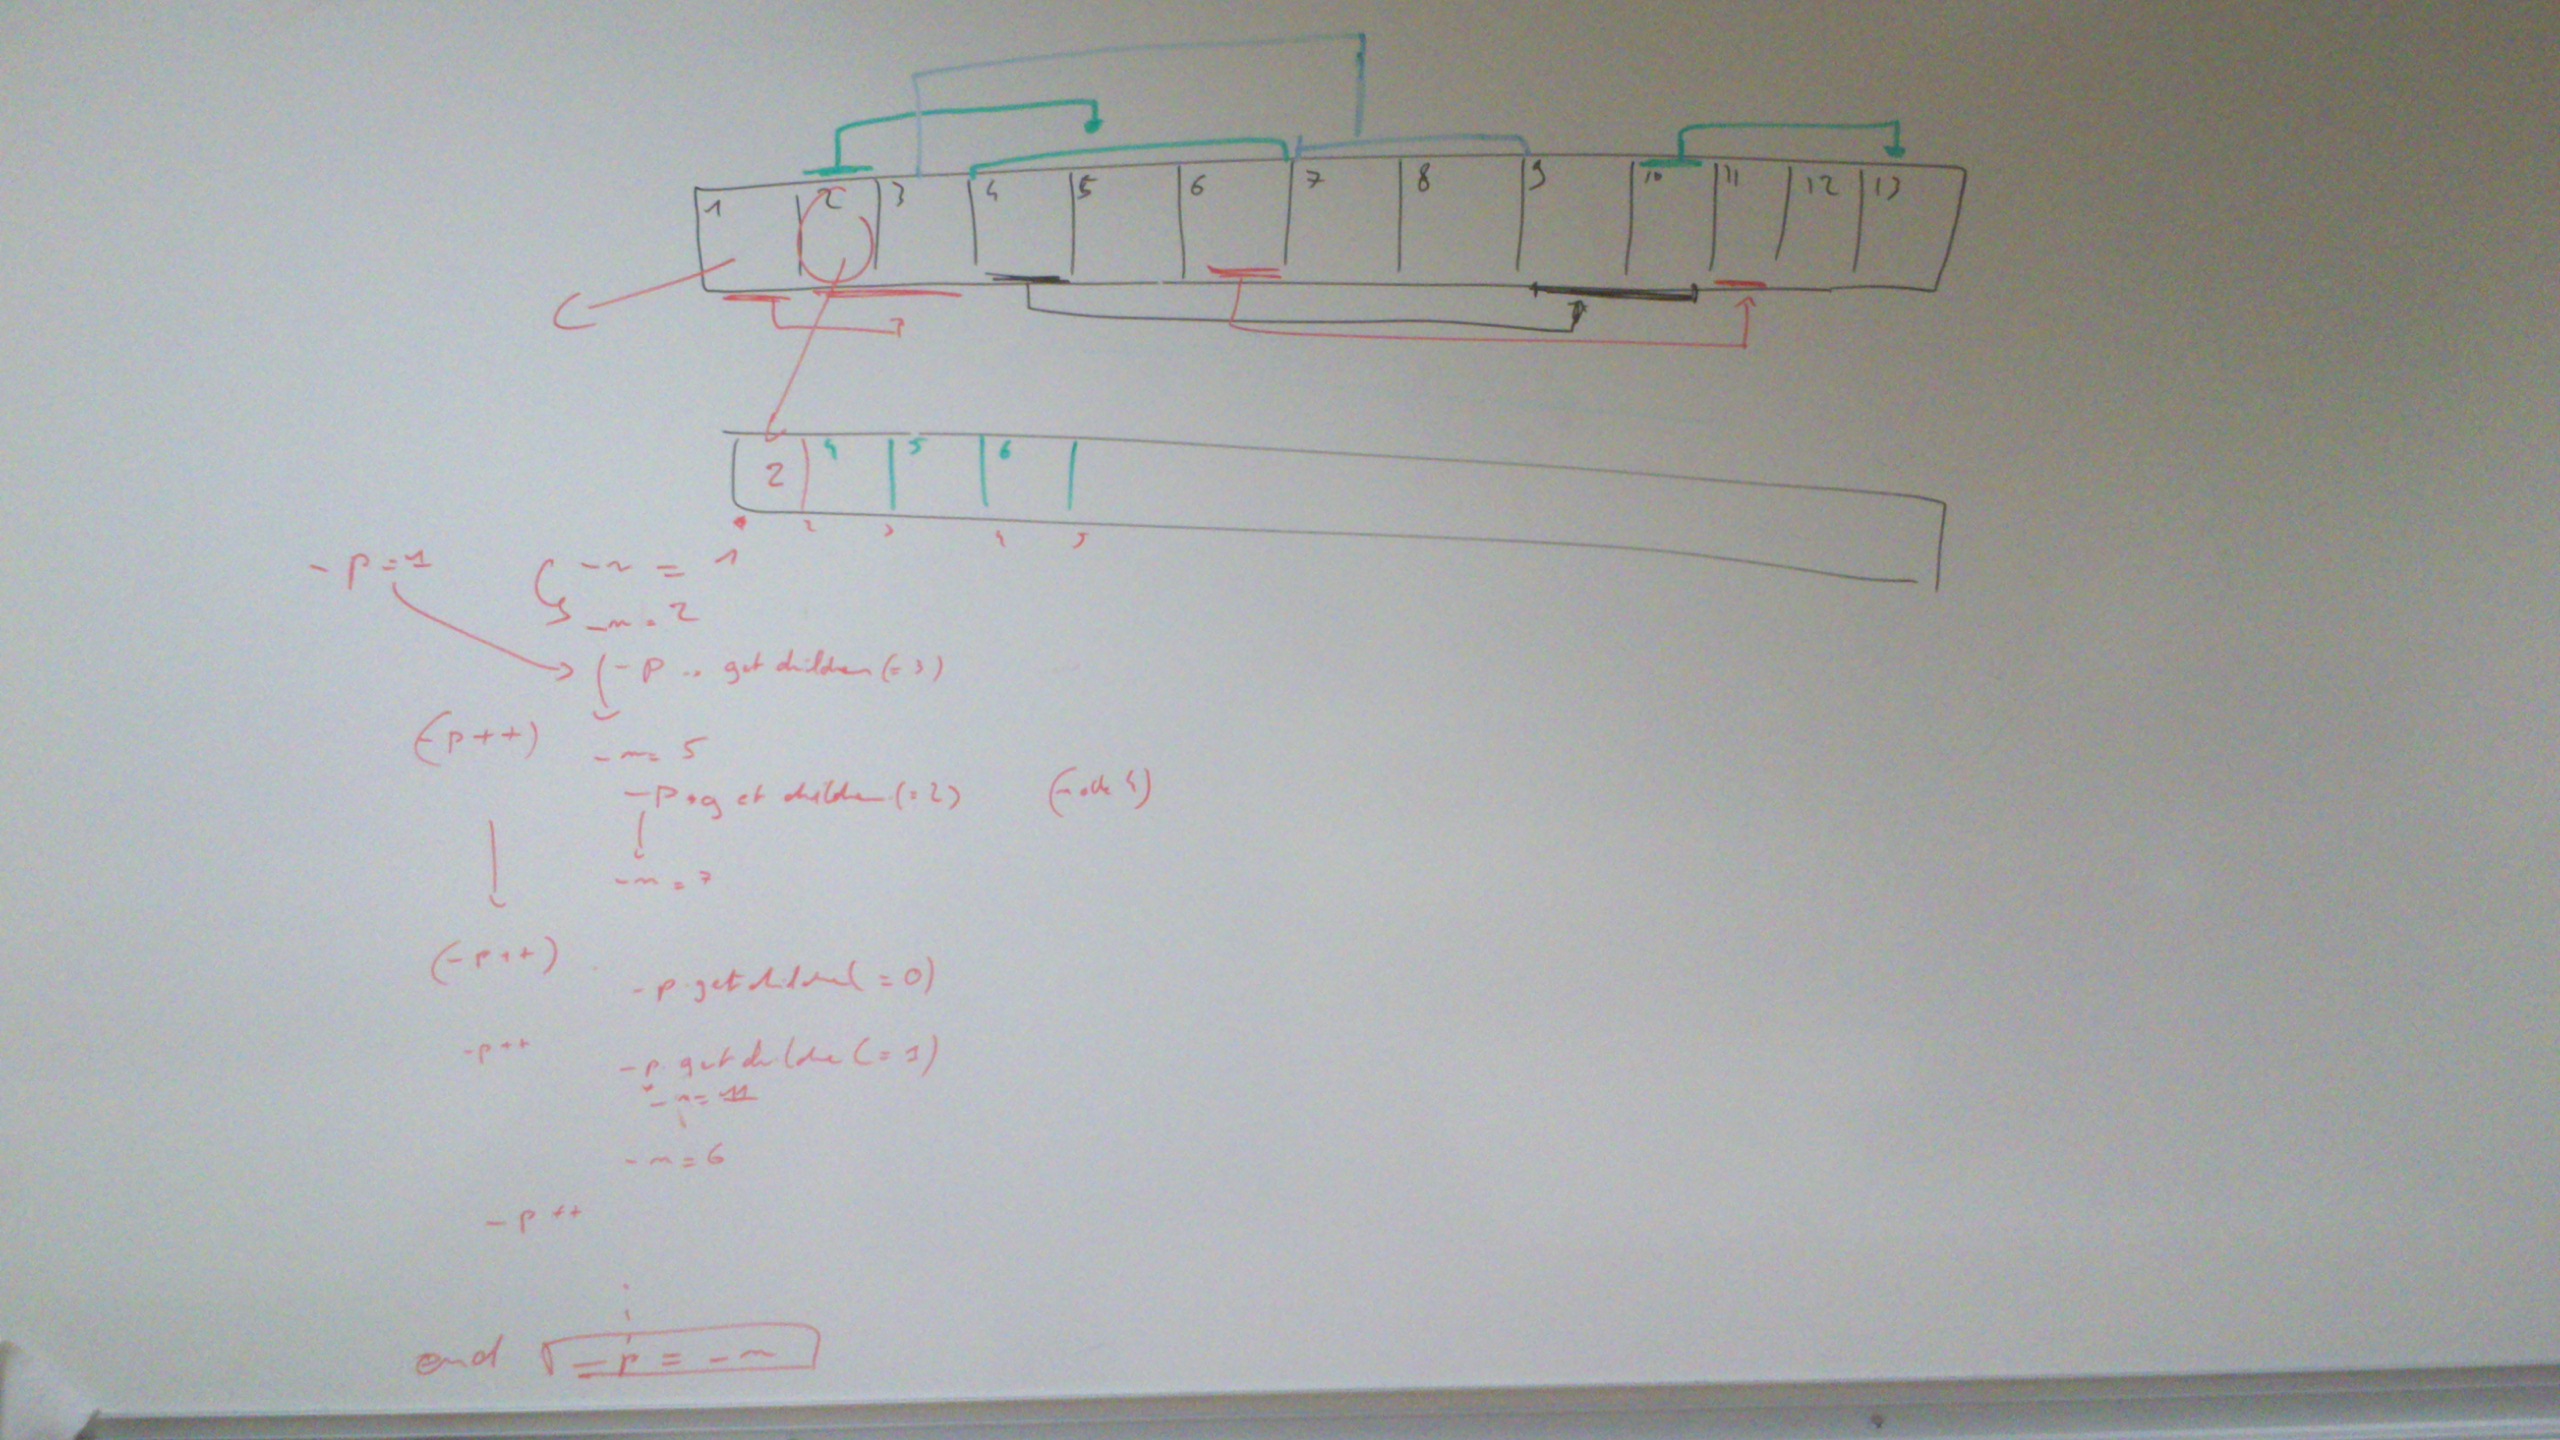 1 2 3 4 5 6 7 8 9 10 11 12 13
2 4 5 6
2 3 4 5
-p=1
-n = 1
-n = 2
-p .. get children (= 3)
(-p++)
-n = 5
-p . get children (= 2) (node 4)
-n = 7
(-p++)
-p get children (= 0)
-p++
-p get children (= 1)
-n = 11
-n = 6
-p++
end -p = -n